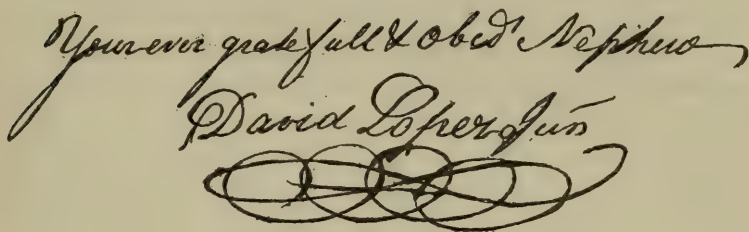 Your ever gratefull & obed Nephew
David Lopez Jun